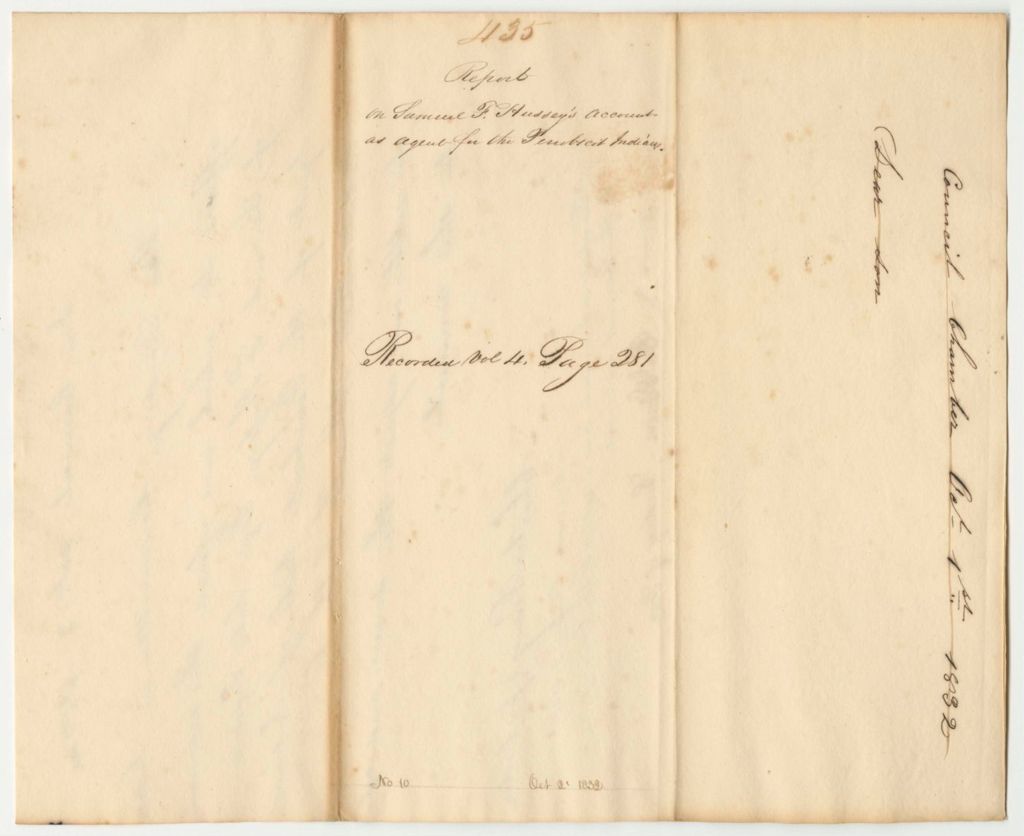 435
Report
on Samuel F. Hussey's account
as agent for the Penobscot Indians.
Recorded Vol 4. Page 281
No 10 Oct 2d 1832
Council Chamber Oct 1st 1832
Dear